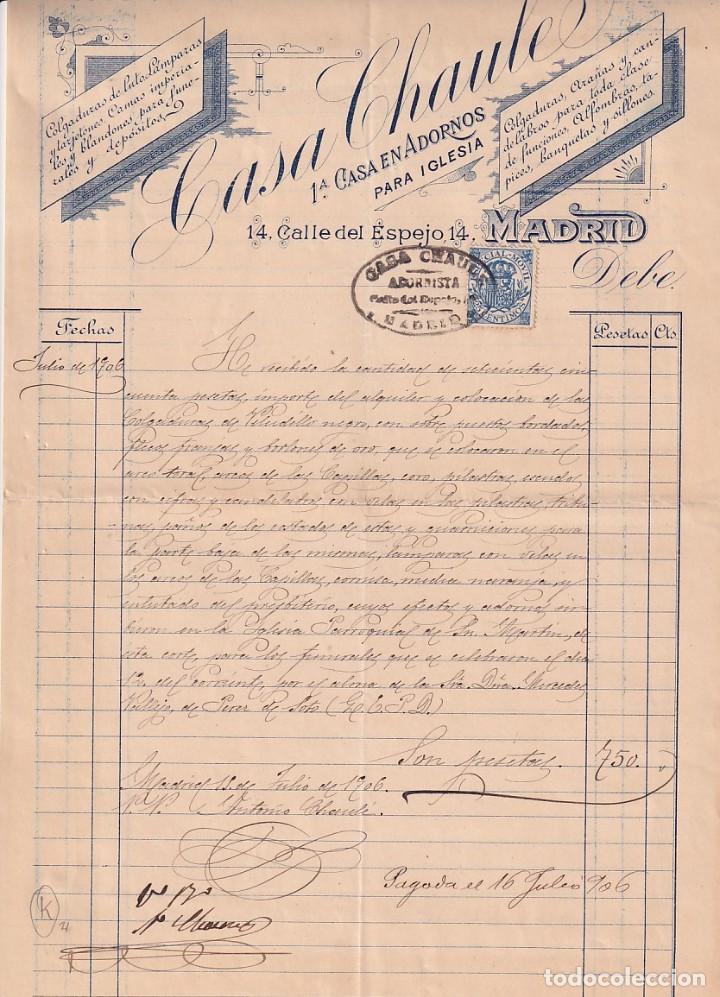 Colgaduras de luto. Lámparas
y tarjetones. Camas imperia-
les y blandones para fune-
rales y depósitos.
Casa Chaulé
1ª CASA EN ADORNOS
PARA IGLESIA
Colgaduras, Arañas y can-
delabros para toda clase
de funciones, Alfombras, ta-
pices, banquetas y sillones.
14, Calle del Espejo, 14.
MADRID
CASA CHAULÉ
ADORNISTA
MADRID
ESPECIAL-MOVIL
CENTIMOS
Debe
Fechas
Pesetas Cts.
Julio de 1906
He recibido la cantidad de setecientas cin-
cuenta pesetas, importe del alquiler y colocacion de las
Colgaduras de Veludillo negro, con sobre puestos bordados,
flecos franjas y borlones de oro, que se colocaron en el
arco toral, arcos de las Capillas, coro, pilastras, escudos
con cifras y candelabros con velas en las pilastras, tribu-
nas, paños de los costados de estas y guarniciones para
la parte baja de las mismas, lámparas con velas en
los arcos de las Capillas, cornisa, media naranja, y
enlutado del presbiterio, cuyos efectos y adornos sir-
bieron en la Iglesia Parroquial de Sn. Martin, de
esta corte, para los funerales que se celebraron el dia
12 del corriente por el alma de la Sra. Dña. Mercedes
Vallejo, de Perez de Soto (E.C.P.D.)
Son pesetas. 750.
Madrid 15 de Julio de 1906
P.P. Antonio Chaulé.
Pagada el 16 Julio 906
Vº Bº
K